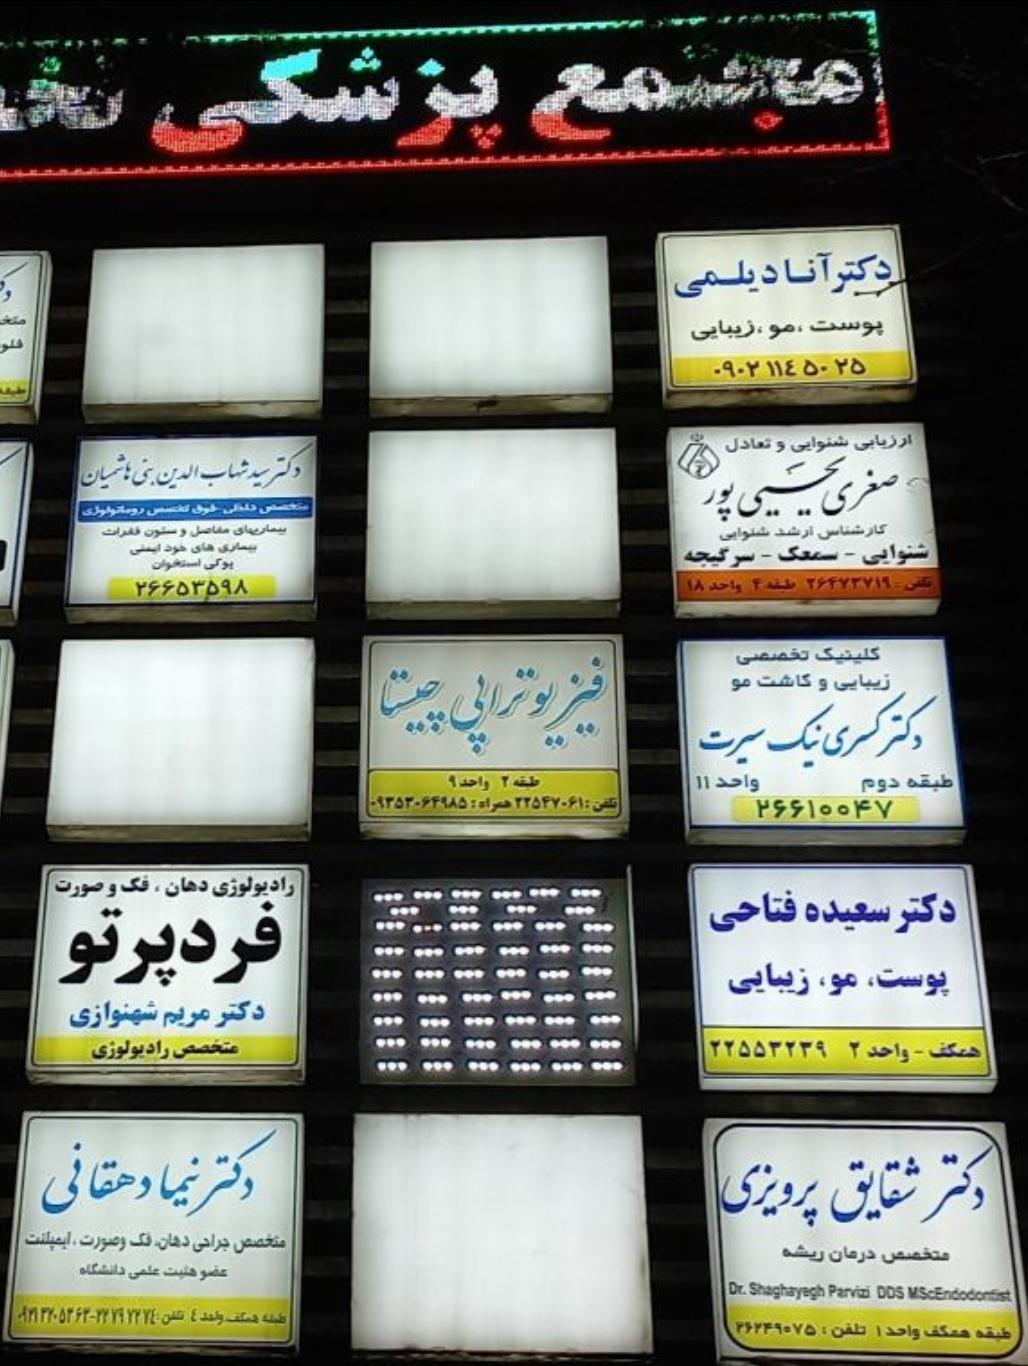 مجتمع پزشکی
دکتر آنا دیلمی
پوست ،مو ،زیبایی
۰۹۰۲ ۱۱۴ ۵۰ ۲۵
دکتر سید شهاب الدین بنی هاشمیان
متخصص داخلی -فوق تخصص روماتولوژی
بیماریهای مفاصل و ستون فقرات
بیماری های خود ایمنی
پوکی استخوان
۲۶۶۵۳۵۹۸
ارزیابی شنوایی و تعادل
صغری یحیی پور
کارشناس ارشد شنوایی
شنوایی - سمعک - سرگیجه
تلفن : ۲۶۴۷۳۷۱۹ طبقه ۴ واحد ۱۸
فیزیوتراپی چیستا
طبقه ۲ واحد ۹
تلفن : ۲۲۵۴۷۰۶۱ همراه : ۰۹۳۵۳۰۶۴۹۸۵
کلینیک تخصصی
زیبایی و کاشت مو
دکتر کسری نیک سیرت
طبقه دوم واحد ۱۱
۲۶۶۱۰۰۴۷
رادیولوژی دهان ، فک و صورت
فردپرتو
دکتر مریم شهنوازی
متخصص رادیولوژی
دکتر سعیده فتاحی
پوست، مو، زیبایی
همکف - واحد ۲ ۲۲۵۵۳۲۳۹
دکتر نیما دهقانی
متخصص جراحی دهان، فک وصورت ، ایمپلنت
عضو هئیت علمی دانشگاه
طبقه همکف واحد ٤ تلفن :
دکتر شقایق پرویزی
متخصص درمان ریشه
Dr. Shaghayegh Parvizi DDS MScEndodontist
طبقه همکف واحد ۱ تلفن : ۲۶۲۴۹۰۷۵